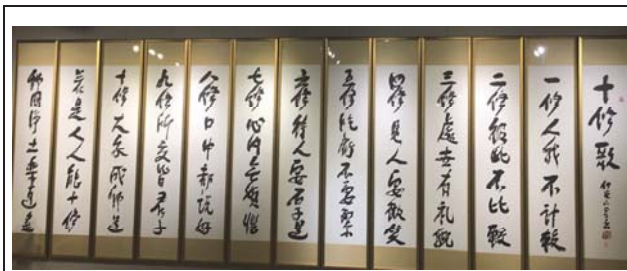 十修歌
一修人我不計較
二修彼此不比較
三修處世有礼貌
四修見人要微笑
五修吃虧不要緊
六修待人要厚道
七修心內無煩惱
八修口中多說好
九修所交皆君子
十修大家成佛道
若是人人能十修
佛國淨土樂逍遙